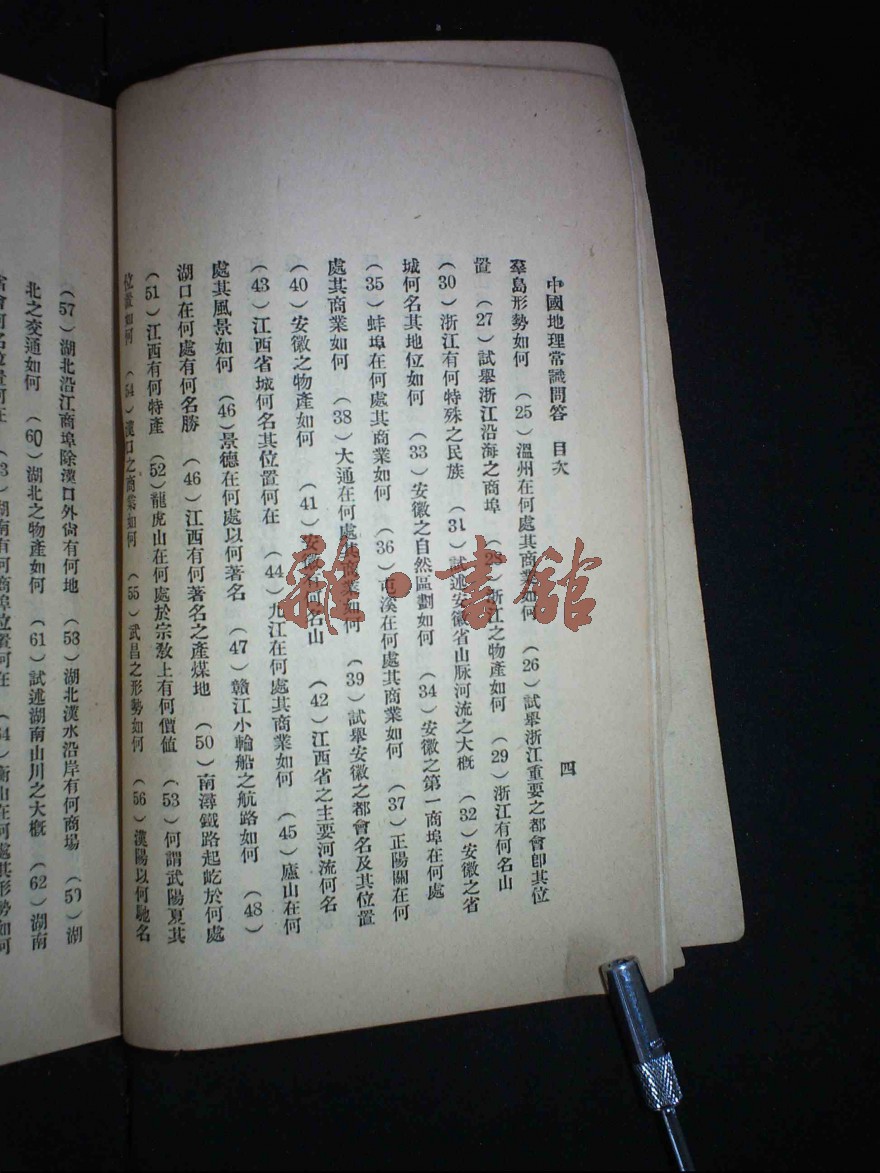 中國地理常識問答 目次 四
羣島形勢如何 (25)溫州在何處其商業如何 (26)試舉浙江重要之都會卽其位
置 (27)試舉浙江沿海之商埠 (28)浙江之物產如何 (29)浙江有何名山
(30)浙江有何特殊之民族 (31)試述安徽省山脉河流之大槪 (32)安徽之省
城何名其地位如何 (33)安徽之自然區劃如何 (34)安徽之第一商埠在何處
(35)蚌埠在何處其商業如何 (36)屯溪在何處其商業如何 (37)正陽關在何
處其商業如何 (38)大通在何處其商業如何 (39)試舉安徽之都會名及其位置
(40)安徽之物產如何 (41)安徽有何名山 (42)江西省之主要河流何名
(43)江西省城何名其位置何在 (44)九江在何處其商業如何 (45)廬山在何
處其風景如何 (46)景德在何處以何著名 (47)贛江小輪船之航路如何 (48)
湖口在何處有何名勝 (46)江西有何著名之產煤地 (50)南潯鐵路起屹於何處
(51)江西有何特產 (52)龍虎山在何處於宗敎上有何價值 (53)何謂武陽夏其
位置如何 (54)漢口之商業如何 (55)武昌之形勢如何 (56)漢陽以何馳名
(57)湖北沿江商埠除漢口外尙有何地 (53)湖北漢水沿岸有何商場 (59)湖
北之交通如何 (60)湖北之物產如何 (61)試述湖南山川之大槪 (62)湖南
省會何名位置何在 (63)湖南有何商埠位置何在 (64)衡山在何處其形勢如何
雜·書館